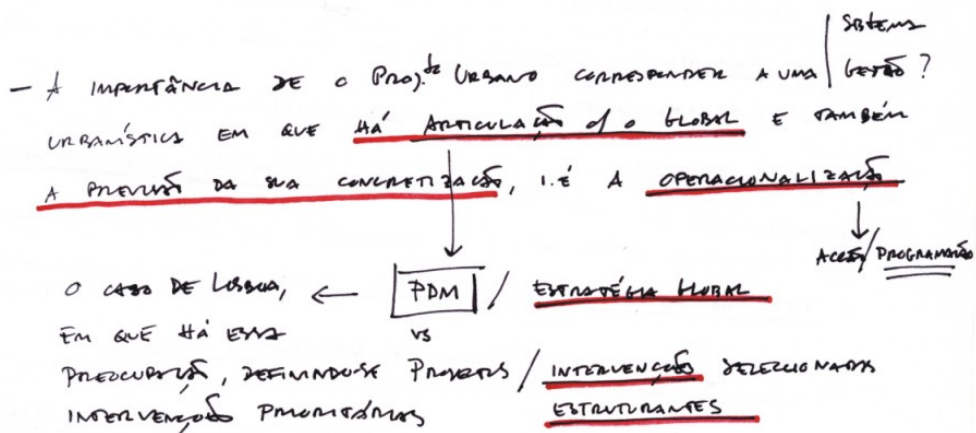 SISTEMA
- A IMPORTÂNCIA DE O PROJ.to URBANO CORRESPONDER A UMA GESTÃO?
URBANÍSTICA EM QUE HÁ ARTICULAÇÃO c/ o GLOBAL E TAMBÉM
A PREVISÃO DA SUA CONCRETIZAÇÃO, I.É A OPERACIONALIZAÇÃO
ACÇÃO/PROGRAMAÇÃO
O CASO DE LISBOA, ← PDM / ESTRATÉGIA GLOBAL
EM QUE HÁ ESSA VS
PREOCUPAÇÃO, DEFININDO-SE PROJECTOS / INTERVENÇÕES SELECCIONADAS
INTERVENÇÕES PRIORITÁRIAS ESTRUTURANTES